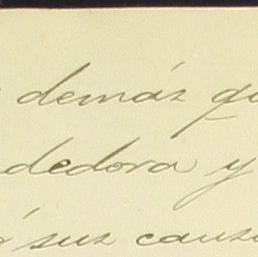 demás qu
dedora y
ó sus causa